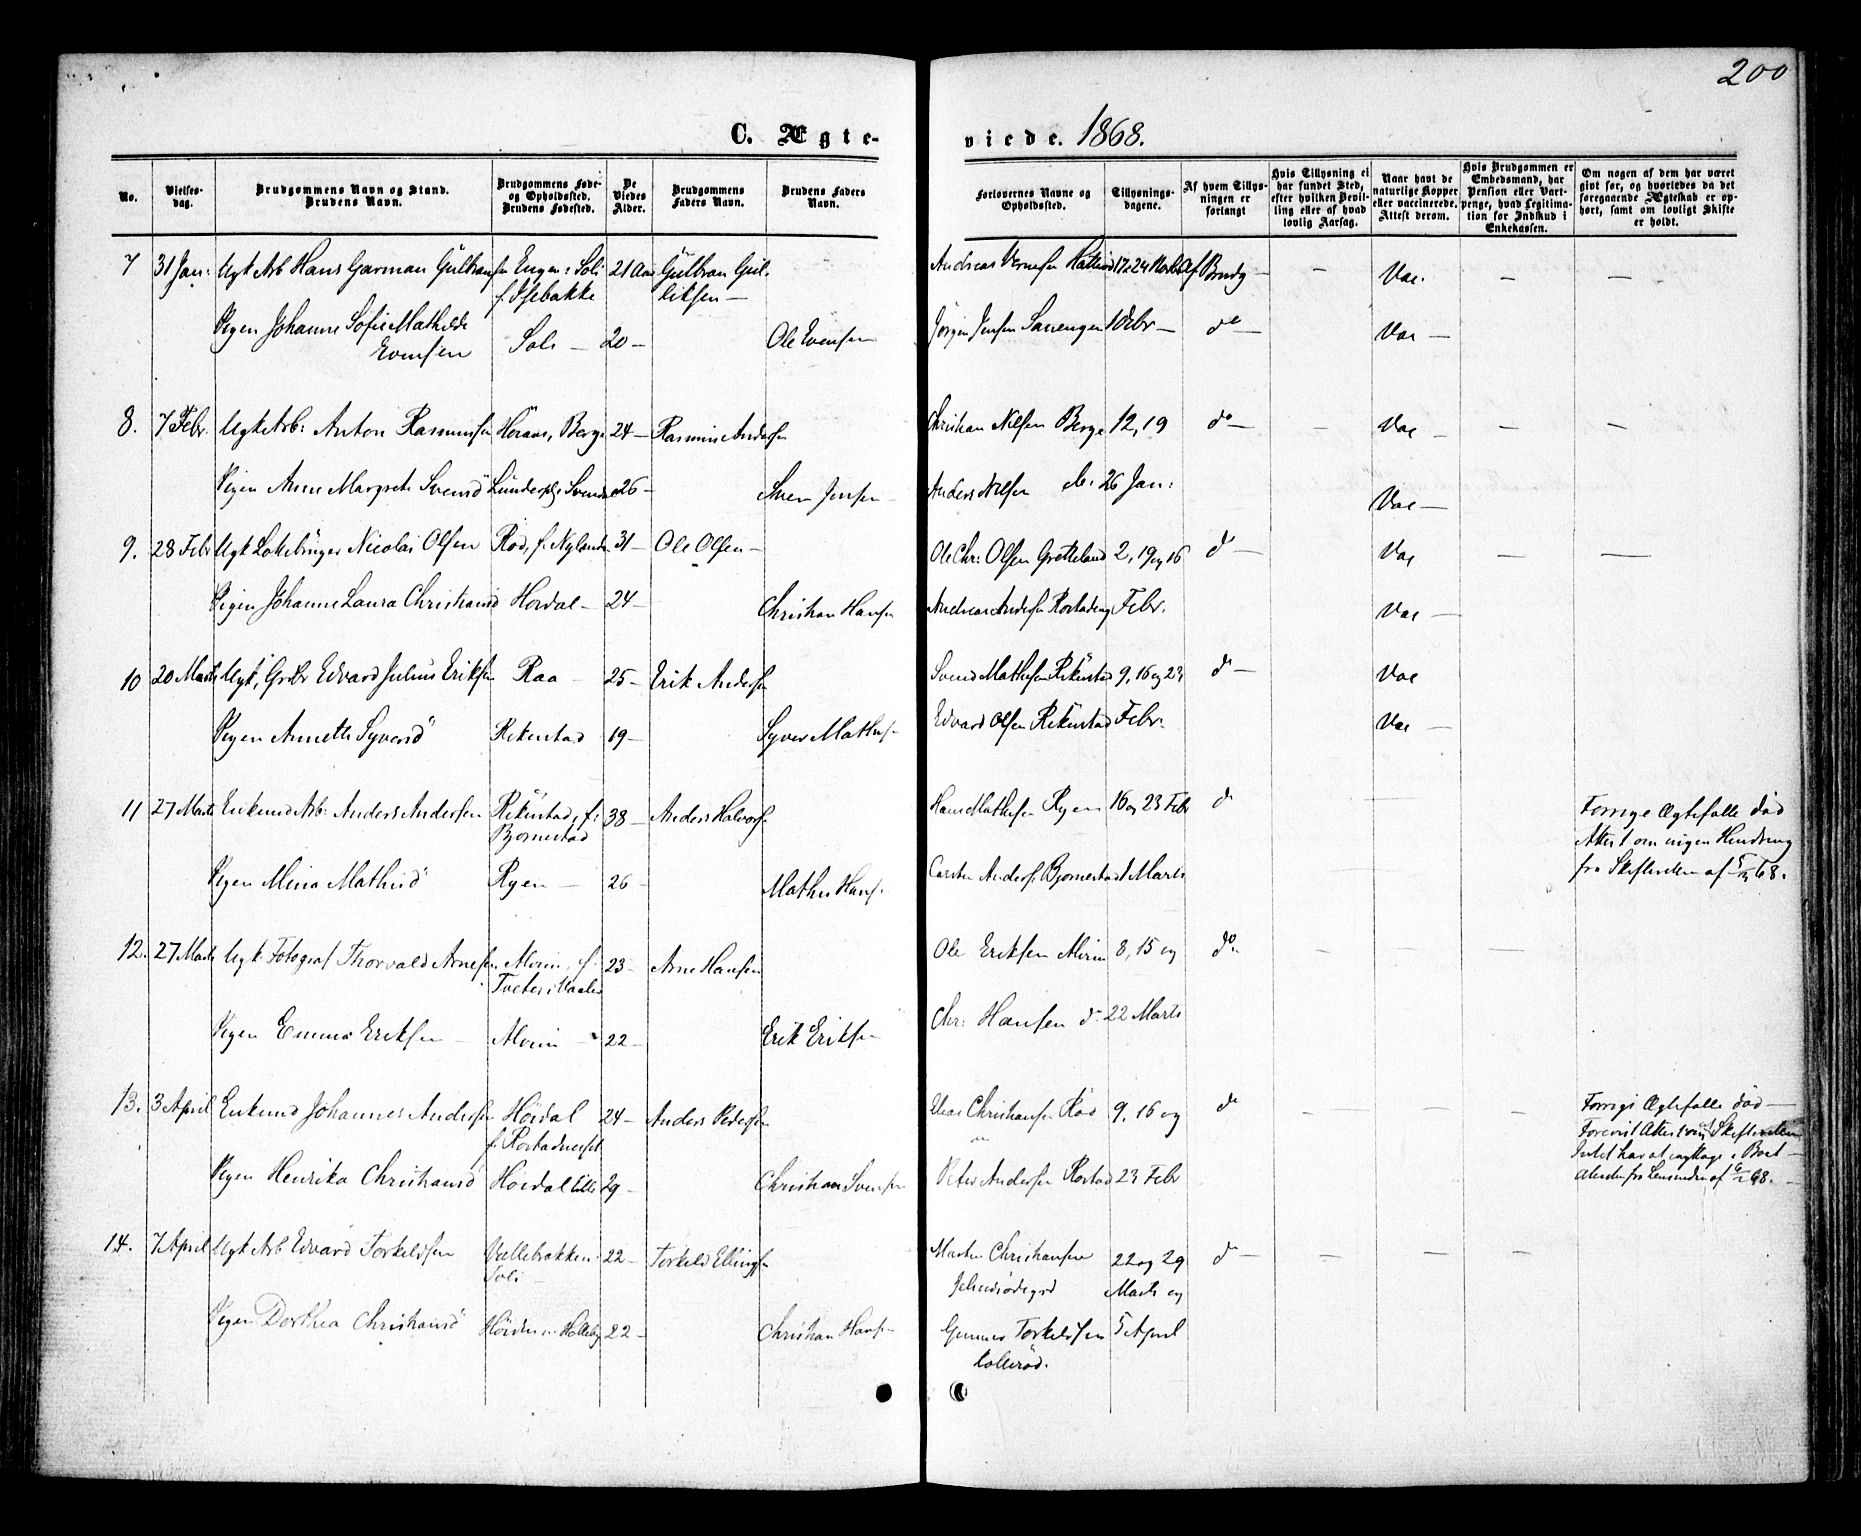 200
C. Ægte-
viede. 1868.
No.
Vielses-
dag.
Brudgommens Navn og Stand.
Brudens Navn.
Brudgommens Føde-
og Opholdssted.
Brudens Fødested.
De
Viedes
Alder.
Brudgommens
Faders Navn.
Brudens Faders
Navn.
Forlovernes Navne og
Opholdssted.
Tillysnings-
dagene.
Af hvem Tillys-
ningen er
forlangt
Hvis Tillysning ei
har fundet Sted,
efter hvilken Bevil-
ling eller af hvad
lovlig Aarsag.
Naar havt de
naturlige Kopper
eller vaccinerede.
Attest derom.
Hvis Brudgommen er
Embedsmand, har
Pension eller Vart-
penge, hvad Legitima-
tion for Indskud i
Enkekassen.
Om nogen af dem har været
givt før, og hvorledes da det
foregaaende Ægteskab er op-
hørt, samt om lovligt Skifte
er holdt.
7 31 Jan: Ugk Arb Hans Garman Gulbransen Engen: Soli 21 Aar Gulbran Gul- Andreas 17. 24 Af Brudg — — Vac. — —
f. Isebakke liksen —
Pigen Johanne Sofie Mathilde
Evensen Soli — 20 — Ole Evensen Jørgen Jensen 1 Febr — do — Vac —
8. 7 Febr. Ugk Arb: Anton Rasmussen Berge 24 — Rasmus Andersen Christian Nilsen Berge 12, 19 do — — Vac — — —
Pigen Anne Margrete Svensd 26 — Sven Jensen Anders Nilsen do. 26 Jan: Vac —
9. 28 Febr Ugk Nicolai Olsen Rød, f. 31 — Ole Olsen — Ole Chr: Olsen Grotteland 2, 19 og 16 do — Vac — —
Pigen Johanne Laura Christiansd Hørdal — 24 — Christian Hansen Andreas Andersen Febr. Vac —
10 20 Marts Ugk, Edvard Julius Eriksen Raa — 25 — Erik Andersen Svend Mathisen Rikustad 9, 16 og 23 do — Vac
Pigen Annette Syversd Rekustad 19 — Syver Mathisen Edvard Olsen Rekustad Febr. Vac —
11 27 Marts Enkemd Arb: Anders Andersen Rikustad, f: 38 — Anders Halvorsen Hans Mathisen Ryen 16 og 23 Febr do Forrige Ægtefælle død
Bjørnestad Attest om ingen Hindring
Pigen Mina Mathisd Ryen — 26 — Mathis Hansen Carsten Anders. Bjørnestad 1 Marts fra Skifteretten af 68.
12. 27 Marts Ugk Fotograf Thorvald Arnesen Alvim, f. 23 — Arne Hansen Ole Eriksen Alvim 8, 15 og do. — — — —
Pigen Emma Eriksen — Alvim — 22 — Erik Eriksen Chr: Hansen do. 22 Marts
13. 3 April Enkemd Johannes Andersen Høidal 24 — Anders Pedersen Christiansen Rød 9, 16 og do — — — Forrige Ægtefælle død —
f.
Pigen Henrika Christiansd Høidal 29 — Christian Svensen Peter Andersen 23 Febr 68.
14. 7 April Ugk Arb Edvard Torkeldsen Vællebækken 22 — Torkeld Ellingsen Martin Christiansen 22 og 29 do — — — —
Soli — Marts og
Pigen Dorthea Christiansd 22 — Christian Hans— Gunnar Torkeldsen 5 April